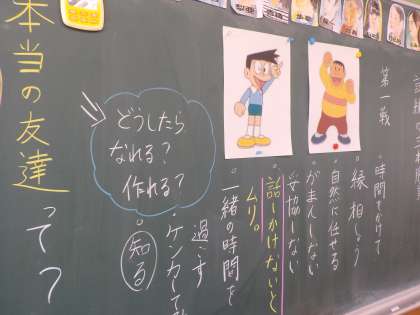 第一戦
・時間をかけて
縁、相しょう
・自然に任せる
・がまんしない
妥協しない
・話しかけないと
ムリ。
・一緒の時間を
過ごす
・ケンカして
知る
どうしたら
なれる?
作れる?
本当の友達って?